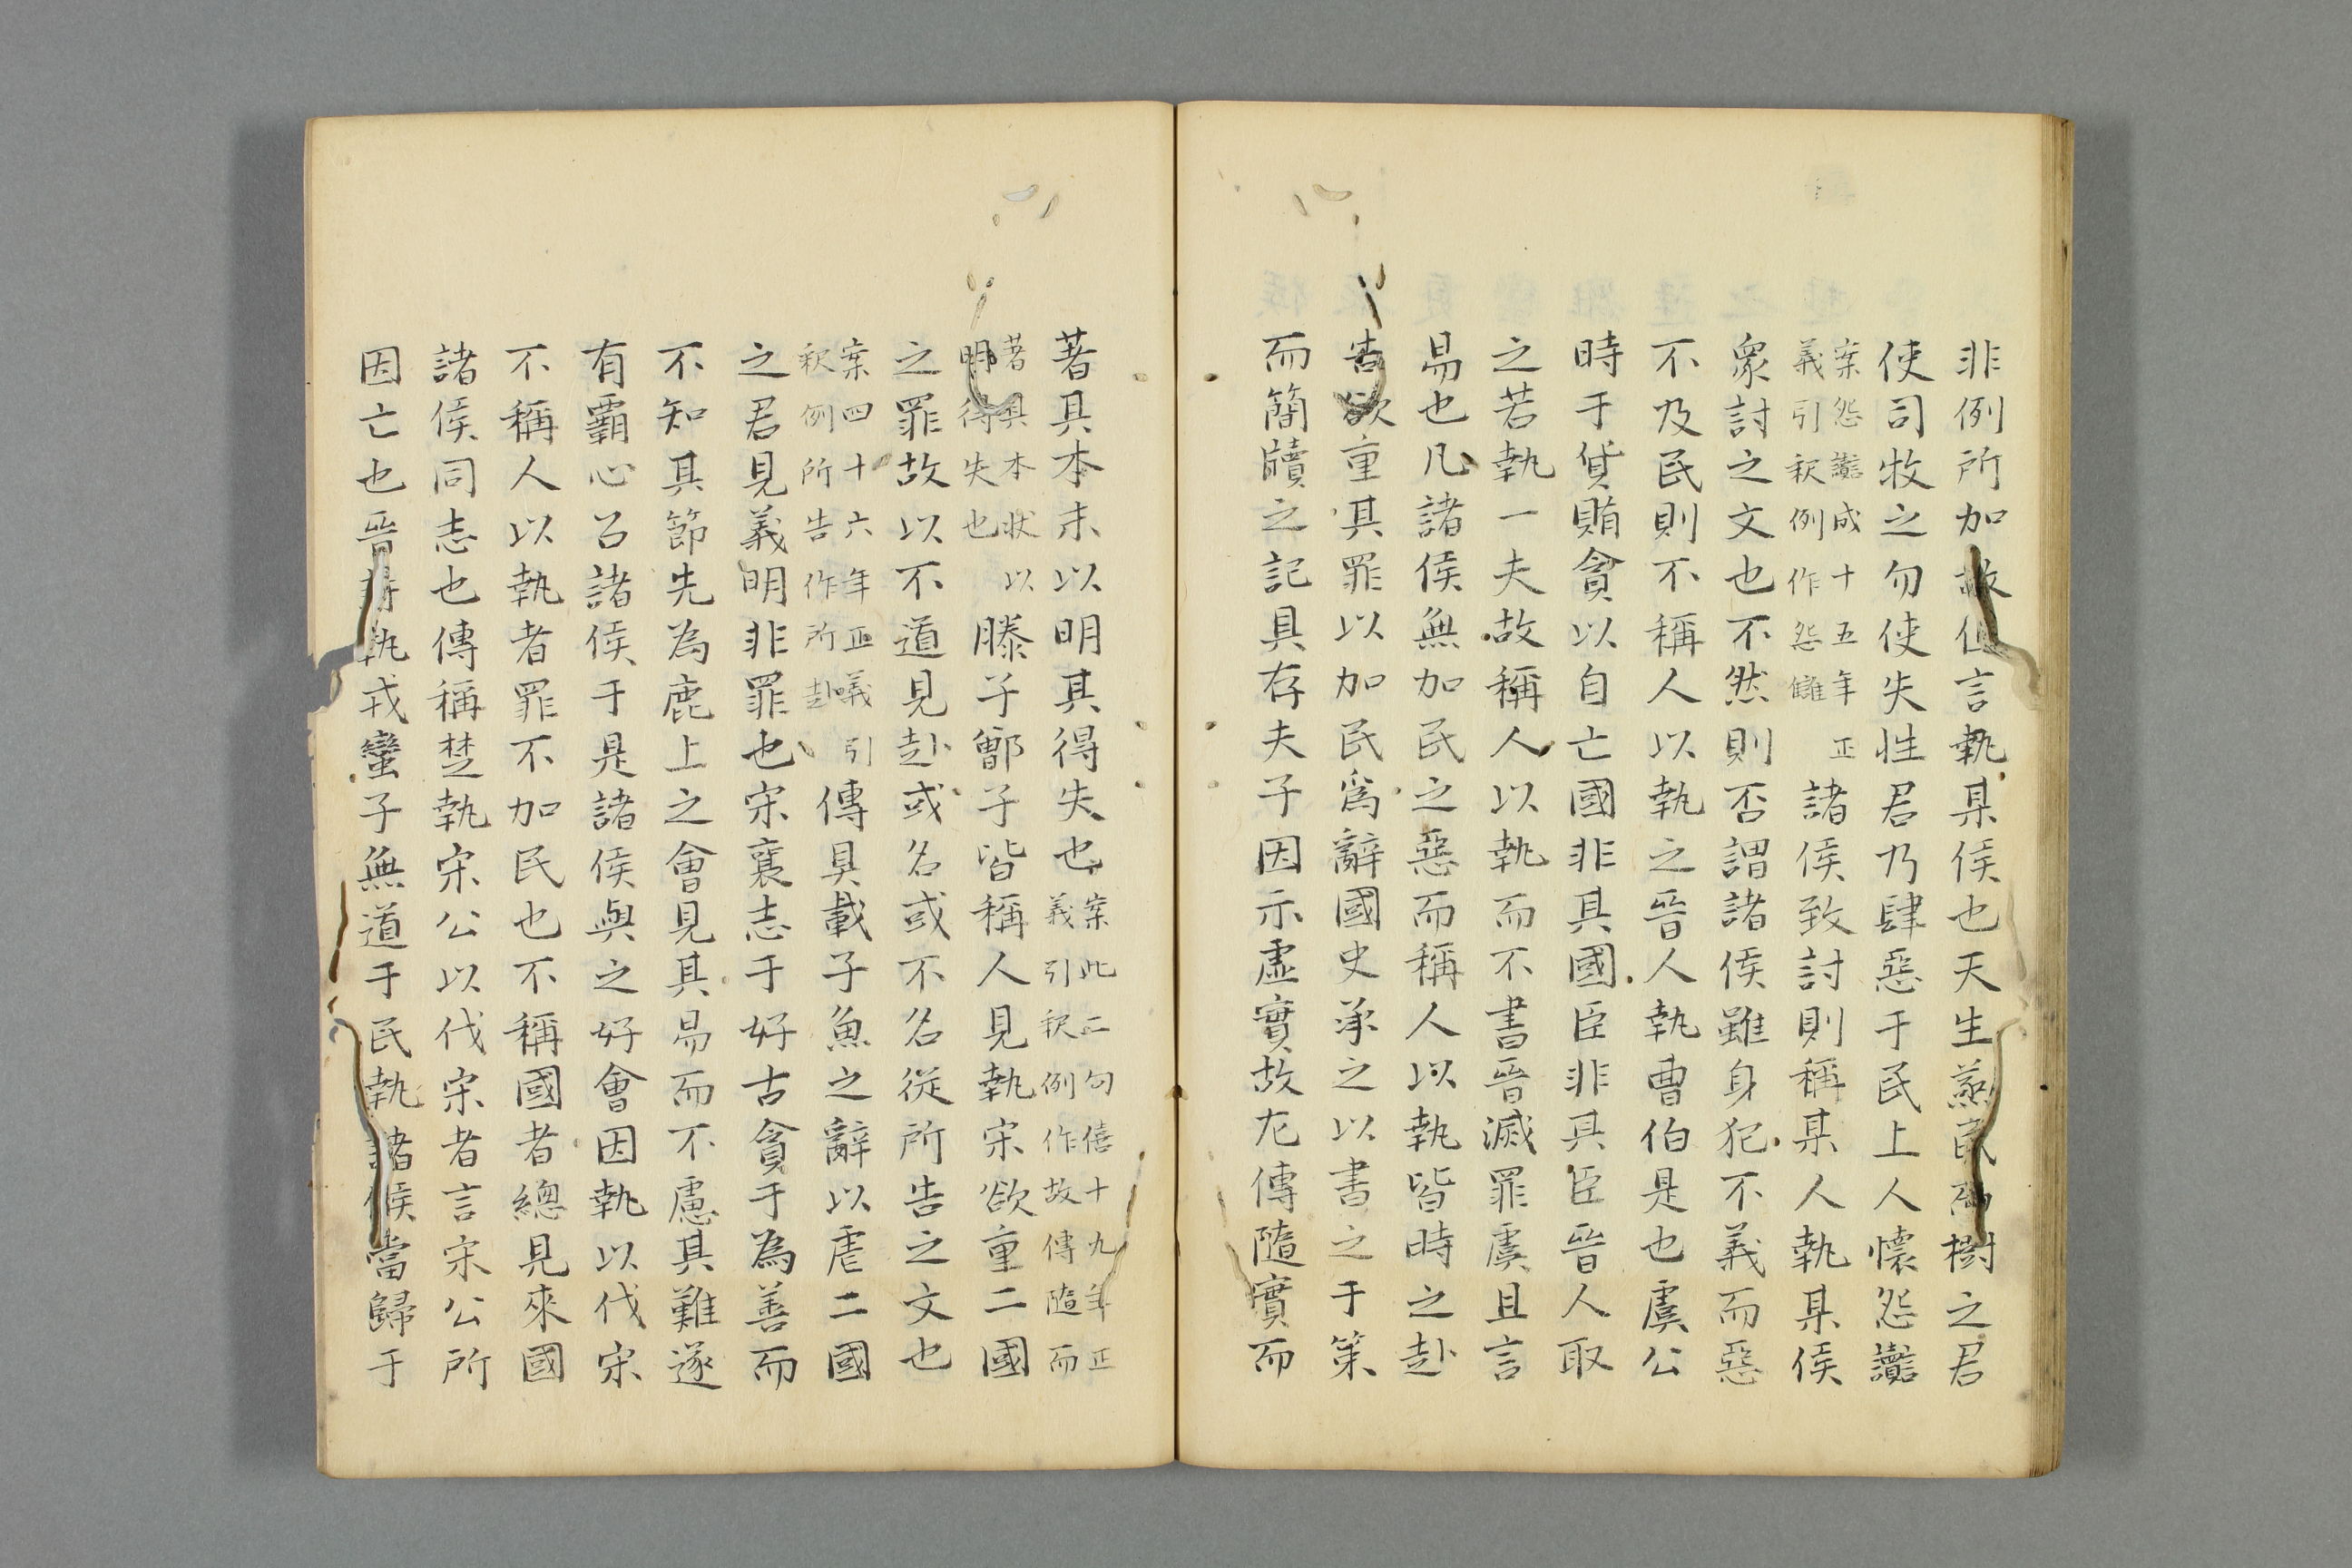 非例所加故但言執某侯也天生蒸民而樹之君
使司牧之勿使失性君乃肆惡于民上人懷怨讟
案怨讟成十五年正
義引釈例作怨讎
諸侯致討則稱某人執某侯
衆討之文也不然則否謂諸侯雖身犯不義而惡
不及民則不稱人以執之晉人執曹伯是也虞公
時于貨賄貪以自亡國非其國臣非其臣晉人取
之若執一夫故稱人以執而不書晉滅罪虞且言
易也凡諸侯無加民之惡而稱人以執皆時之赴
告欲重其罪以加民為辭國史承之以書之于策
而簡牘之記具存夫子因示虛實故尤傳隨實而
著其本末以明其得失也
案此二句僖十九年正
義引釈例作故傳隨而
著其本狀以
明得失也
滕子鄫子皆稱人見執宋欲重二國
之罪故以不道見赴或名或不名從所告之文也
案四十六年正義引
釈例所告作所赴
傳具載子魚之辭以虐二國
之君見義明非罪也宋襄志于好古貪于為善而
不知其節先為鹿上之會見其易而不慮其難遂
有霸心召諸侯于是諸侯與之好會因執以伐宋
不稱人以執者罪不加民也不稱國者總見來國
諸侯同志也傳稱楚執宋公以伐宋者言宋公所
因亡也晉執戎蠻子無道于民執諸侯當歸于